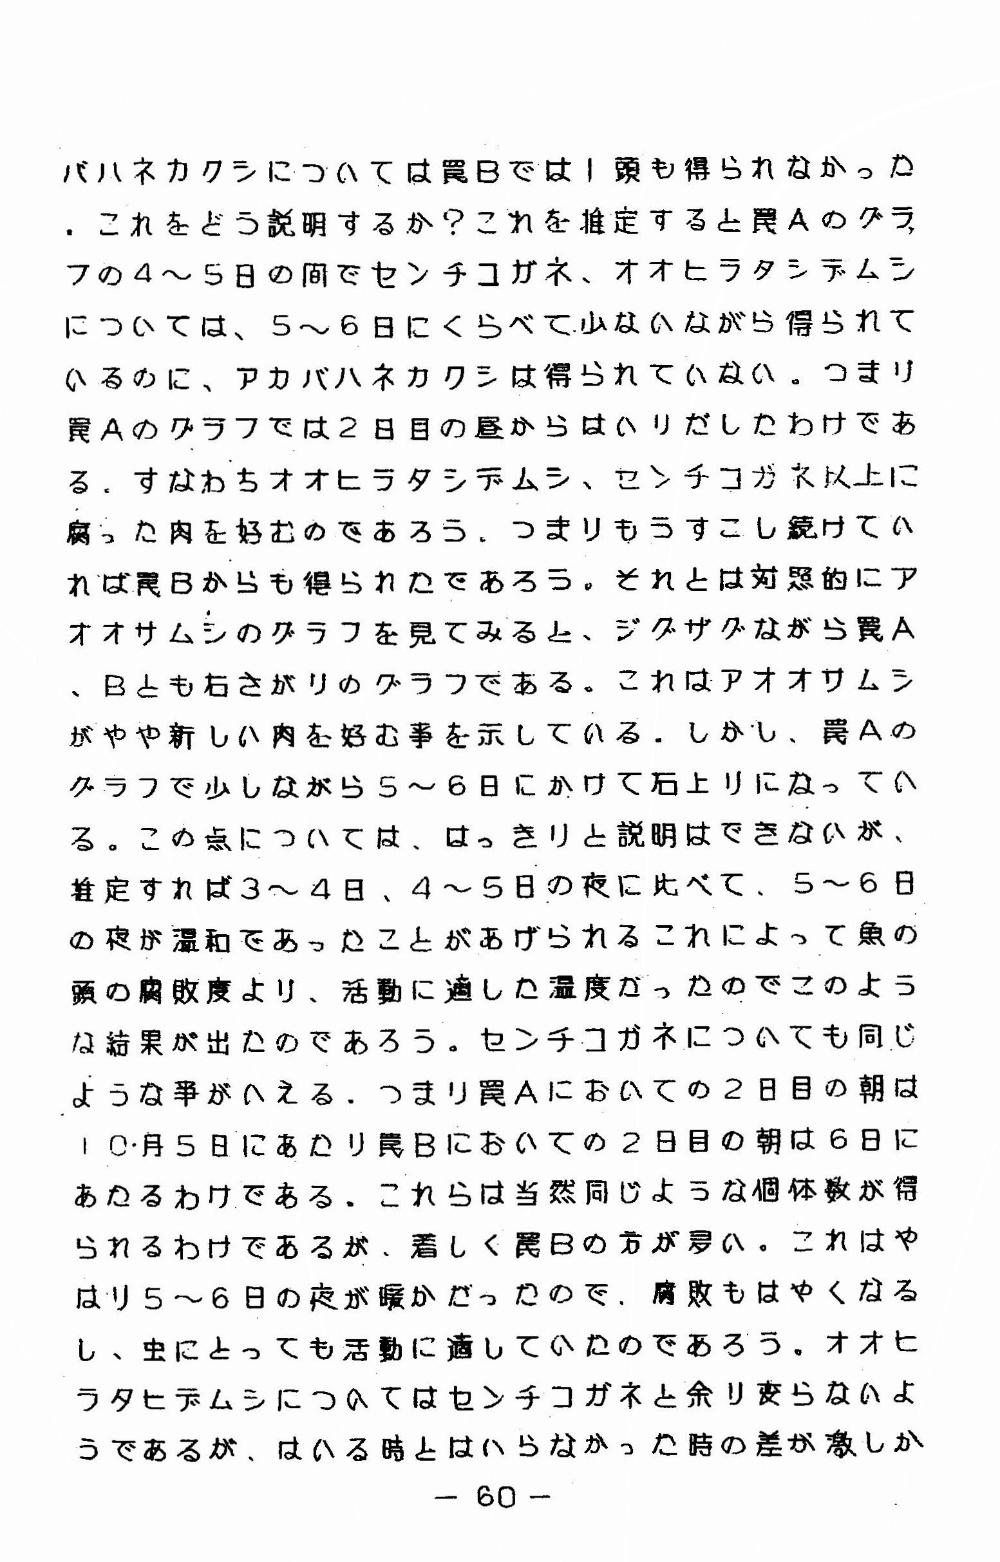 バハネカクシについては罠Bでは1頭も得られなかった
．これをどう説明するか？これを推定すると罠Aのグラ
フの4～5日の間でセンチコガネ、オオヒラタシデムシ
については、5～6日にくらべて少ないながら得られて
いるのに、アカバハネカクシは得られていない。つまり
罠Aのグラフでは2日目の昼からはいりだしたわけであ
る．すなわちオオヒラタシデムシ、センチコガネ以上に
腐った肉を好むのであろう．つまりもうすこし続けてい
れば罠Bからも得られたであろう。それとは対照的にア
オオサムシのグラフを見てみると、ジグザグながら罠A
、Bとも右さがりのグラフである。これはアオオサムシ
がやや新しい肉を好む事を示している．しかし、罠Aの
グラフで少しながら5～6日にかけて右上りになってい
る。この点については、はっきりと説明はできないが、
推定すれば3～4日、4～5日の夜に比べて、5～6日
の夜が温和であったことがあげられるこれによって魚の
頭の腐敗度より、活動に適した温度だったのでこのよう
な結果が出たのであろう。センチコガネについても同じ
ような事がいえる．つまり罠Aにおいての2日目の朝は
10月5日にあたり罠Bにおいての2日目の朝は6日に
あたるわけである．これらは当然同じような個体数が得
られるわけであるが、着しく罠Bの方が多い。これはや
はり5～6日の夜が暖かだったので、腐敗もはやくなる
し、虫にとっても活動に適していたのであろう。オオヒ
ラタヒデムシについてはセンチコガネと余り変らないよ
うであるが、はいる時とはいらなかった時の差が激しか
— 60 —